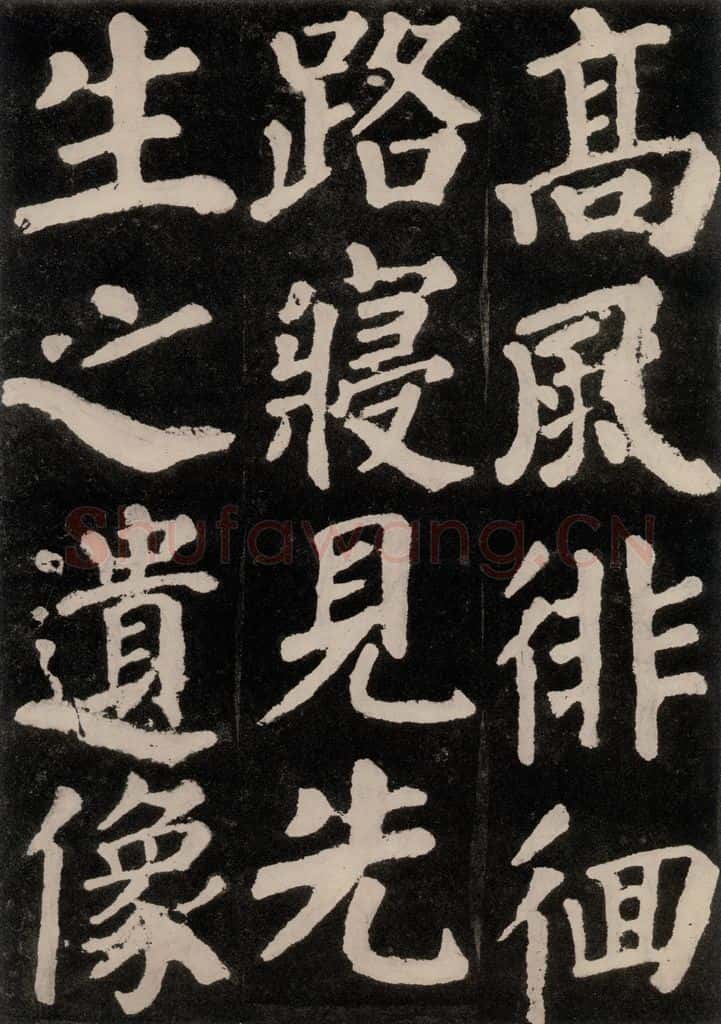 髙風徘徊
路寢見先
生之遺像
Shufawang.CN